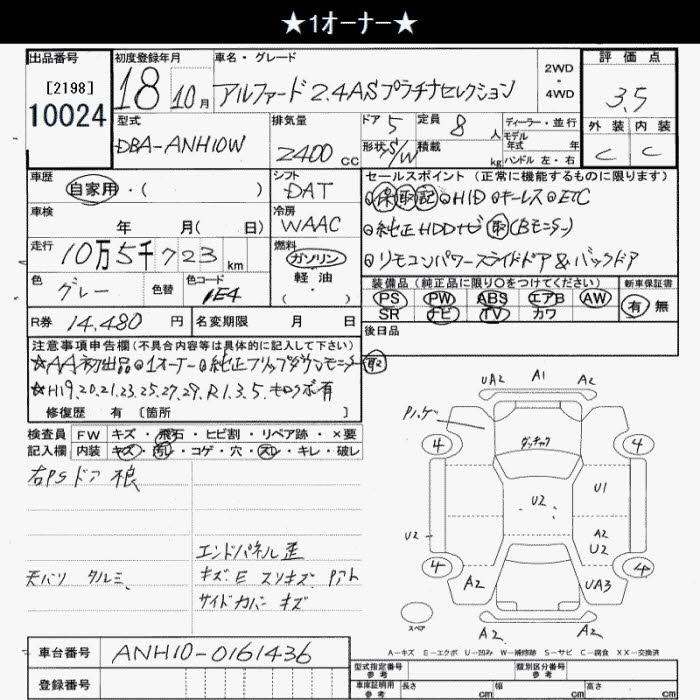 ★1オーナー★
出品番号
[2198]
10024
初度登録年月
18 10月
車名・グレード
アルファード 2.4AS プラチナセレクション
2WD
・
4WD
評価点
3.5
外装 内装
C C
型式
DBA-ANH10W
排気量
2400 cc
ドア 5
形状 S/W
定員 8 人
積載 kg
ディーラー・並行
モデル
年式 年
ハンドル 左・右
車歴
自家用・( )
シフト
DAT
車検
年 月( 日)
冷房
WAAC
走行
10万5千723 km
燃料
ガソリン
軽油
・
( )
色
グレー
色替
色コード
1E4
R券 14,480 円
名変期限 月 日
セールスポイント(正常に機能するものに限ります)
◎保 取 記 ◎HID ◎キーレス ◎ETC
◎純正HDDナビ 取 (Bモニター)
◎リモコンパワースライドドア&バックドア
装備品(純正品に限り〇をつけてください)
PS PW ABS エアB AW
SR ナビ TV カワ
新車保証書
有 無
後日品
注意事項申告欄(不具合内容等は具体的に記入して下さい)
☆AA初出品 ◎1オーナー ◎純正フリップダウンモニター 取
☆H19.20.21.23.25.27.29.R1.3.5.キロクボ有
修復歴 有 [箇所
検査員
記入欄
FW キズ・飛石・ヒビ割・リペア跡・×要
内装 キズ・汚レ・コゲ・穴・スレ・キレ・破レ
右PSドア 根
エンドパネル 歪
天バリ タルミ、
キズ・E スリキズ Pアト
サイドカバー キズ
UA2 A1 A2
4 4
ダッチャク
U2
U1
U2
A2
U2
4 4
A2
UA3
スペア
A2 A2
A-キズ E-エクボ U-凹み W-補修跡 S-サビ C-腐食 XX-交換済
車台番号 ANH10-0161436
登録番号
型式指定番号
参考
類別区分番号
参考
車庫証明用
参考
長さ cm 幅 cm 高さ cm